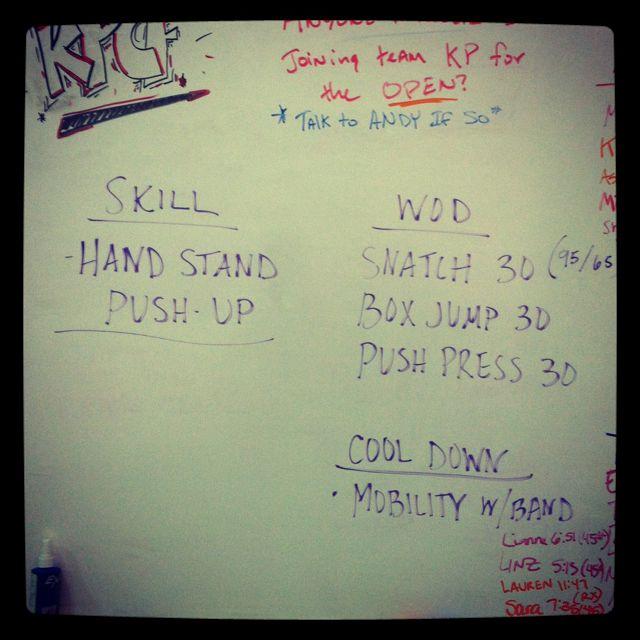 Joining team KP for
the OPEN?
* TALK to ANDY IF SO *
SKILL
- HAND STAND
PUSH-UP
WOD
SNATCH 30 (95/65
BOX JUMP 30
PUSH PRESS 30
COOL DOWN
• MOBILITY W/BAND
Lianna 6:51 (45#)
LINZ 5:15 (45#)
LAUREN 11:47
(RX)
Sara